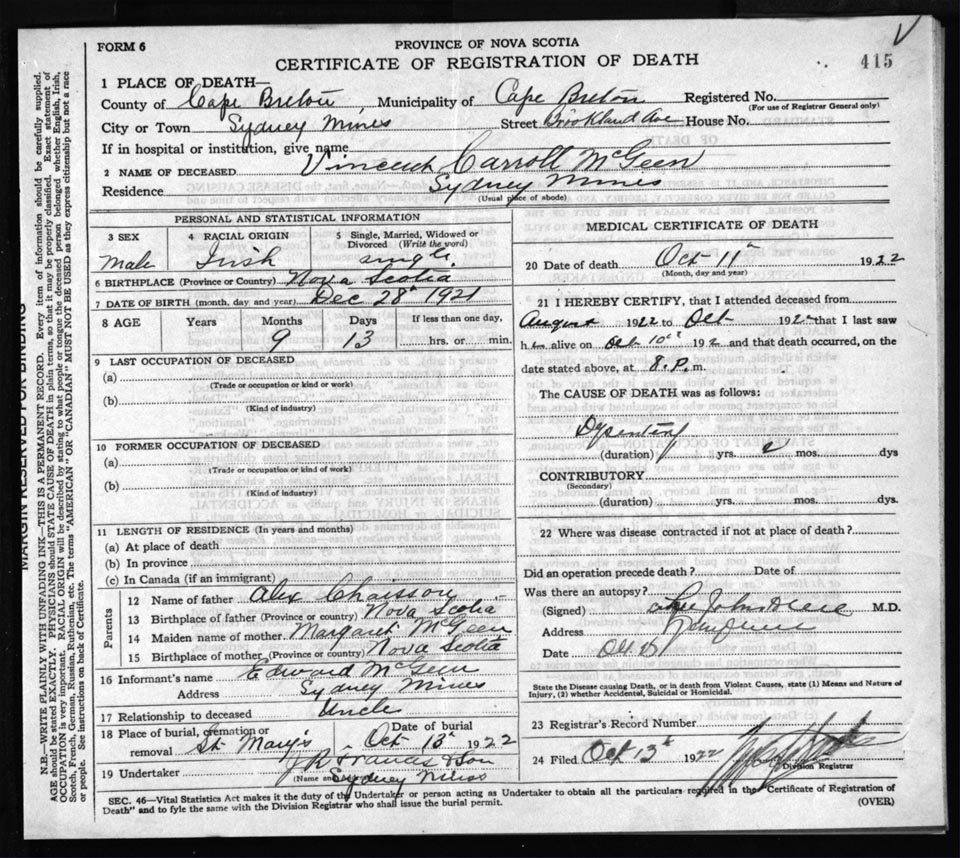 FORM 6
PROVINCE OF NOVA SCOTIA
CERTIFICATE OF REGISTRATION OF DEATH
415
1 PLACE OF DEATH—
County of Cape Breton Municipality of Cape Breton Registered No.
(For use of Registrar General only)
City or Town Sydney Mines Street Brookland Ave House No.
If in hospital or institution, give name
2 NAME OF DECEASED Vincent Carroll McGeen
Residence Sydney Mines
(Usual place of abode)
PERSONAL AND STATISTICAL INFORMATION
3 SEX 4 RACIAL ORIGIN 5 Single, Married, Widowed or Divorced (Write the word)
Male Irish single
6 BIRTHPLACE (Province or Country) Nova Scotia
7 DATE OF BIRTH (month, day and year) Dec 28th 1921
8 AGE Years Months Days If less than one day,
9 13 hrs. or min.
9 LAST OCCUPATION OF DECEASED
(a)
(Trade or occupation or kind or work)
(b)
(Kind of industry)
10 FORMER OCCUPATION OF DECEASED
(a)
(Trade or occupation or kind or work)
(b)
(Kind of industry)
11 LENGTH OF RESIDENCE (In years and months)
(a) At place of death
(b) In province
(c) In Canada (if an immigrant)
Parents
12 Name of father Alex Chaisson
13 Birthplace of father (Province or Country) Nova Scotia
14 Maiden name of mother Margaret McGeen
15 Birthplace of mother (Province or Country) Nova Scotia
16 Informant's name Edward McGeen
Address Sydney Mines
17 Relationship to deceased Uncle
18 Place of burial, cremation or removal St Mary's Date of burial Oct 13th 1922
19 Undertaker J R Francis & Son
(Name and Sydney Mines
MEDICAL CERTIFICATE OF DEATH
20 Date of death Oct 11th 1922
(Month, day and year)
21 I HEREBY CERTIFY, that I attended deceased from
August 1922 to Oct 1922 that I last saw
h alive on Oct 10th 192 and that death occurred, on the
date stated above, at 8.P.m.
The CAUSE OF DEATH was as follows:
Dysentery
(duration) yrs. 2 mos. dys
CONTRIBUTORY
(Secondary)
(duration) yrs. mos. dys.
22 Where was disease contracted if not at place of death?
Did an operation precede death? Date of
Was there an autopsy?
(Signed) M.D.
Address
Date Oct
State the Disease causing Death, or in death from Violent Causes, state (1) Means and Nature of
Injury, (2) whether Accidental, Suicidal or Homicidal.
23 Registrar's Record Number
24 Filed Oct 13th 1922
Division Registrar
SEC. 46—Vital Statistics Act makes it the duty of the Undertaker or person acting as Undertaker to obtain all the particulars required in the "Certificate of Registration of
Death" and to fyle the same with the Division Registrar who shall issue the burial permit.
(OVER)
MARGIN RESERVED FOR BINDING
N.B.—WRITE PLAINLY WITH UNFADING INK—THIS IS A PERMANENT RECORD. Every item of information should be carefully supplied.
AGE should be stated EXACTLY. PHYSICIANS should STATE CAUSE OF DEATH in plain terms, so that it may be properly classified. Exact statement of
OCCUPATION is very important. RACIAL ORIGIN will be described by stating to what people or tongue the deceased person belonged whether English, Irish,
Scotch, French, German, Russian, Ruthenian, etc. The terms "AMERICAN" OR "CANADIAN" MUST NOT BE USED as they express citizenship but not a race
or people. See instructions on back of Certificate.